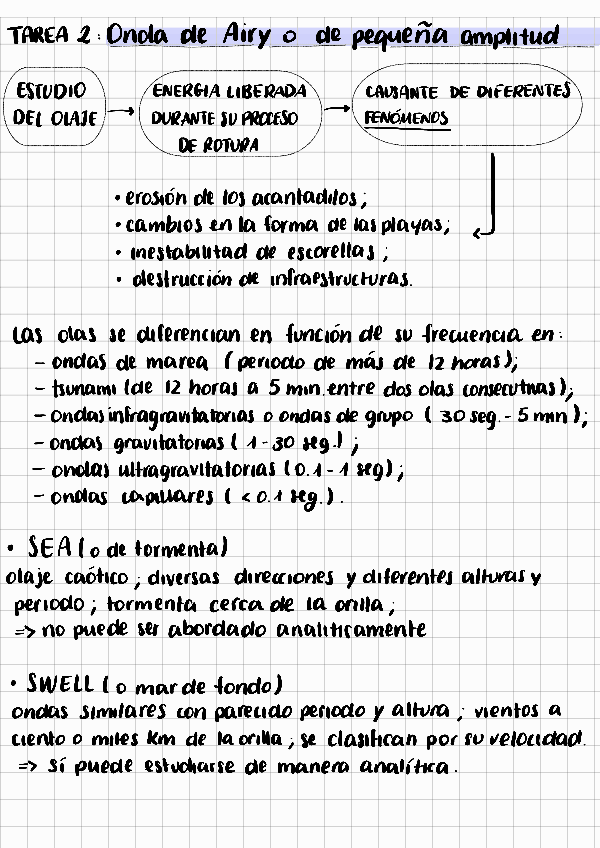 TAREA 2: Onda de Airy o de pequeña amplitud
ESTUDIO
DEL OLAJE
ENERGIA LIBERADA
DURANTE SU PROCESO
DE ROTURA
CAUSANTE DE DIFERENTES
FENÓMENOS
• erosión de los acantadilos;
• cambios en la forma de las playas;
• inestabilitad de escorellas;
• destrucción de infraestructuras.
Las olas se diferencian en función de su frecuencia en:
- ondas de marea (periodo de más de 12 horas);
- tsunami (de 12 horas a 5 min. entre dos olas consecutivas);
- ondas infragravitatorias o ondas de grupo (30 seg. - 5 min);
- ondas gravitatorias (1 - 30 seg.);
- ondas ultragravitatorias (0.1 - 1 seg);
- ondas capillares (<0.1 seg.).
• SEA (o de tormenta)
olaje caótico; diversas direcciones y diferentes alturas y
periodo; tormenta cerca de la orilla;
=> no puede ser abordado analiticamente
• SWELL (o mar de fondo)
ondas similares con parecido periodo y altura; vientos a
ciento o miles km de la orilla; se clasifican por su velocidad.
=> sí puede estudiarse de manera analítica.